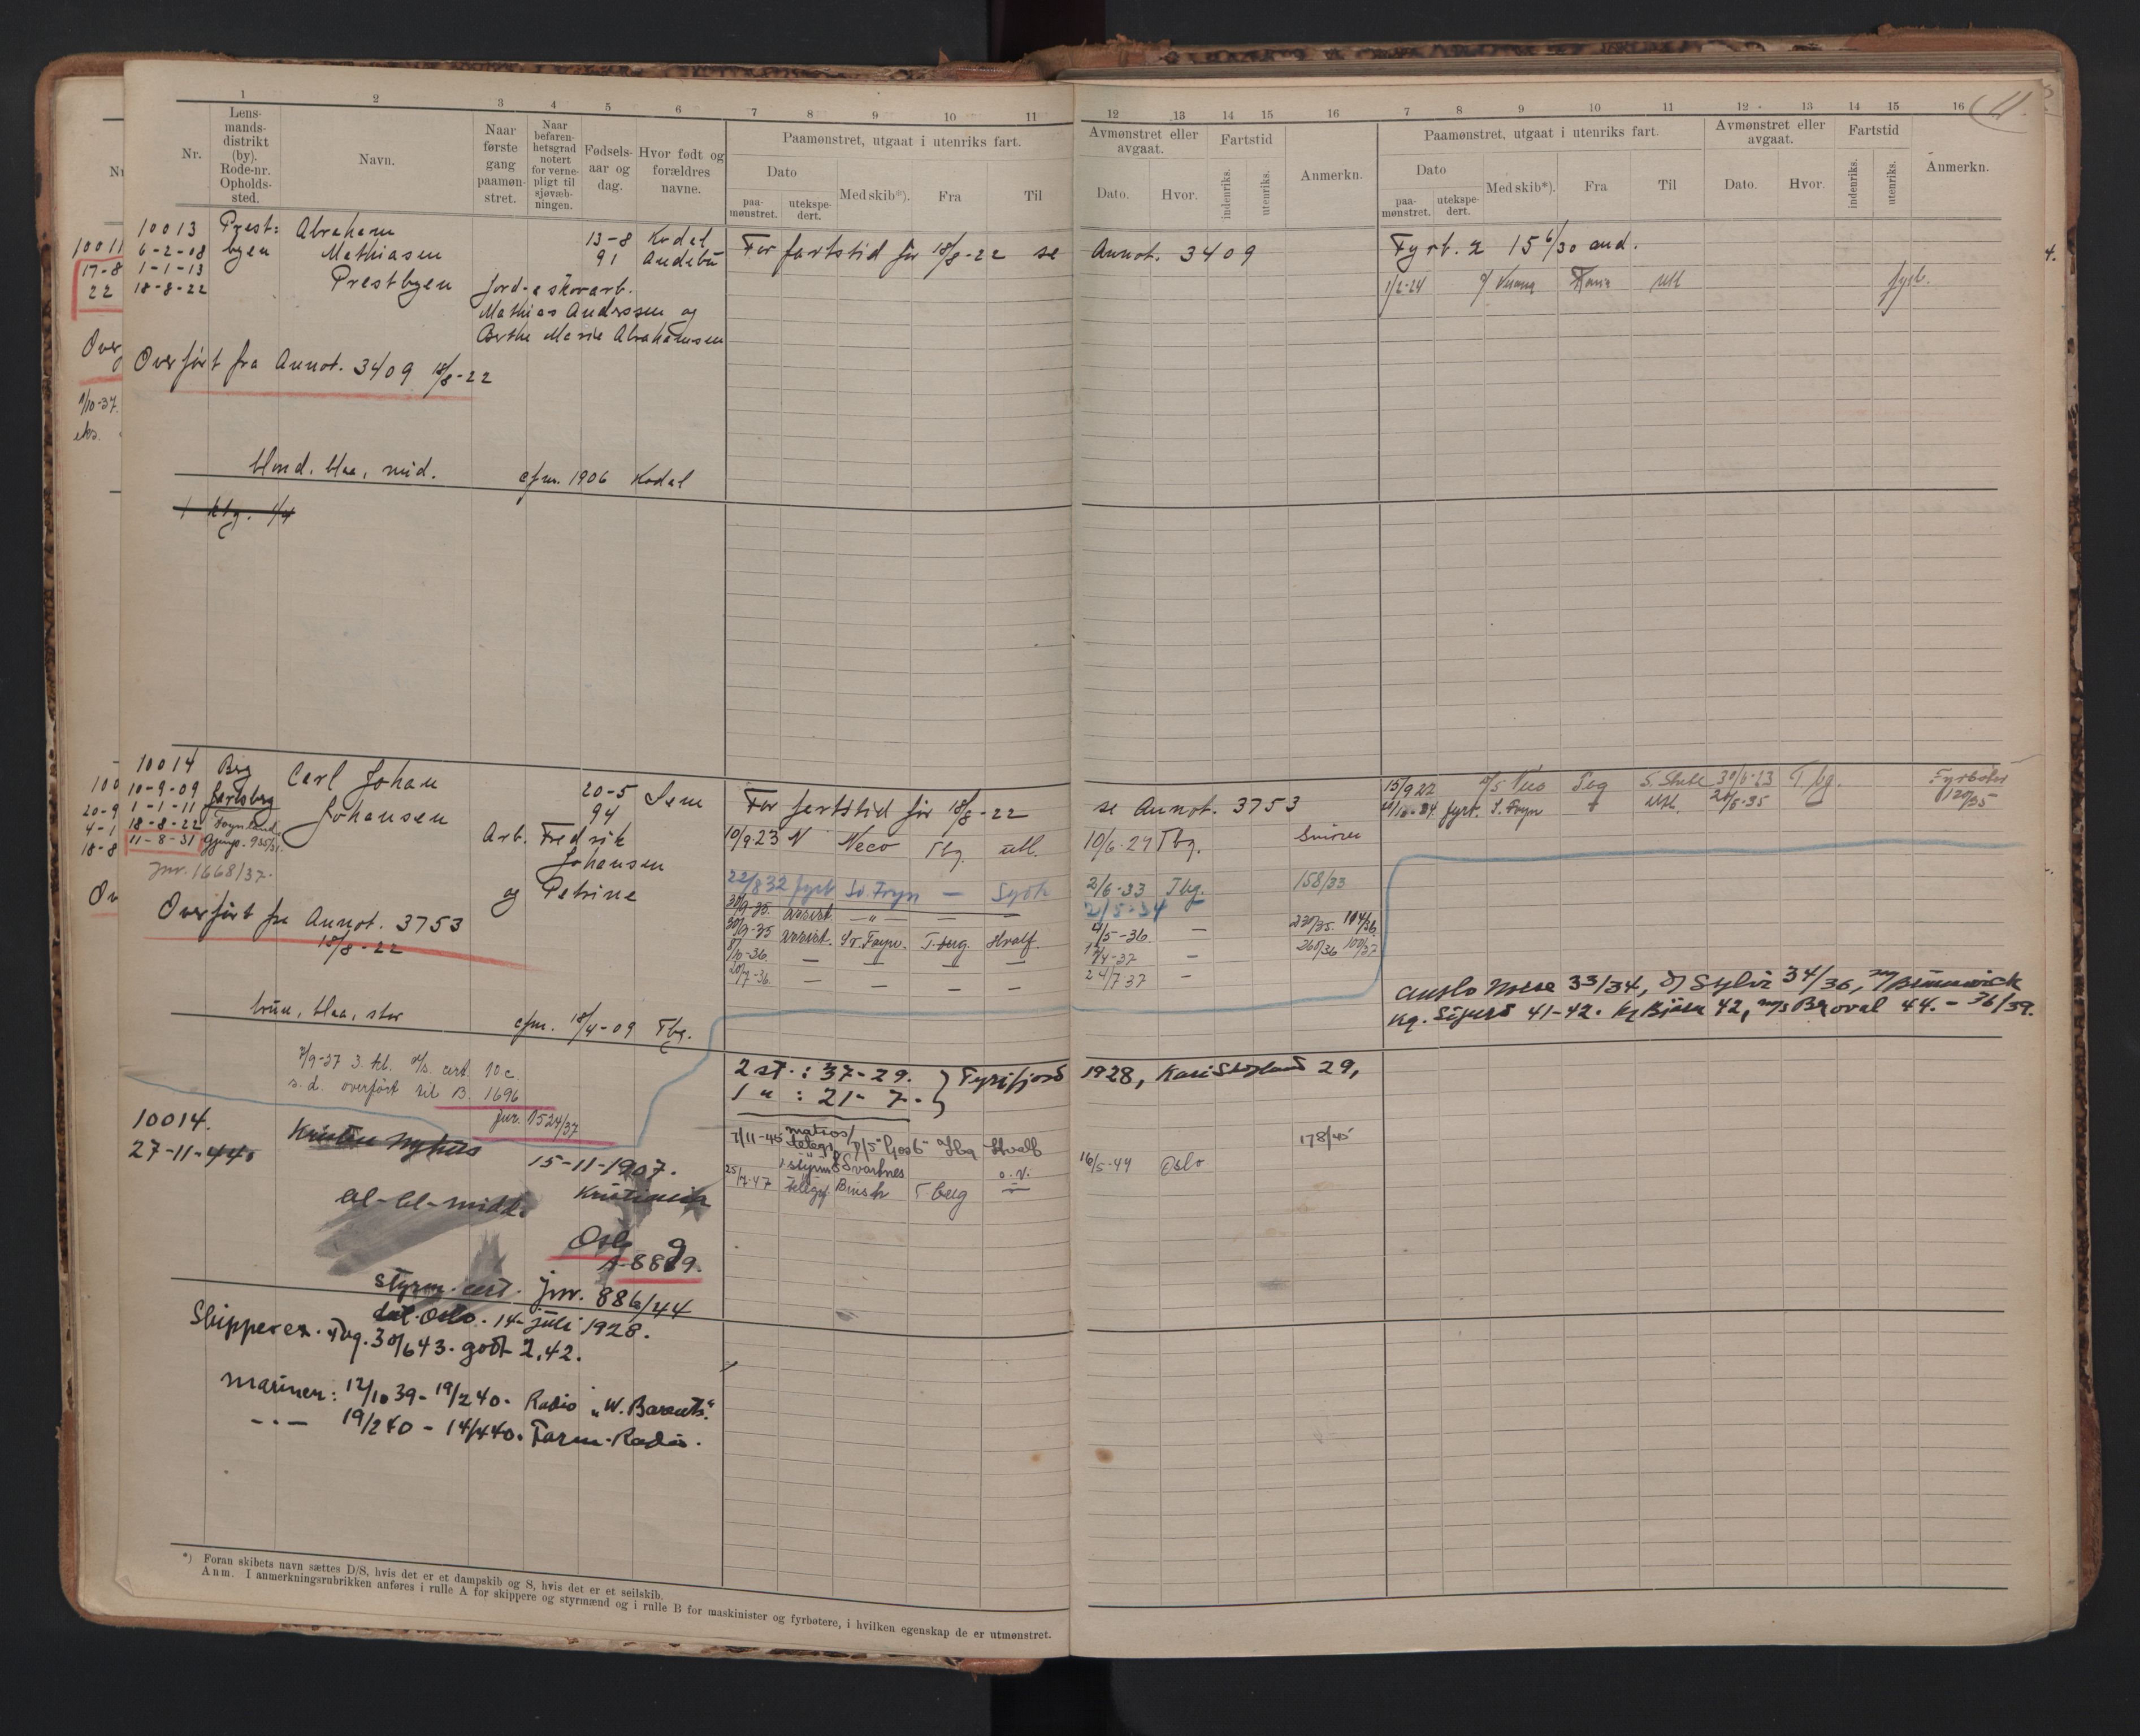 1 2 3 4 5 6 7 8 9 10 11
Nr.
Lens-
mands-
distrikt
(by).
Rode-nr.
Opholds-
sted.
Navn.
Naar
første
gang
paamøn-
stret.
Naar
befaren-
hetsgrad
notert
for verne-
pligt til
sjøvæb-
ningen.
Fødsels-
aar og
dag.
Hvor født og
forældres
navne.
Paamønstret, utgaat i utenriks fart.
Dato
paa-
mønstret.
utekspe-
dert.
Med skib*).
Fra
Til
12 13 14 15 16
Avmønstret eller
avgaat.
Dato.
Hvor.
Fartstid
indenriks.
utenriks.
Anmerkn.
7 8 9 10 11 12 13 14 15 16
11.
Paamønstret, utgaat i utenriks fart.
Dato
paa-
mønstret.
utekspe-
dert.
Med skib*).
Fra
Til
Avmønstret eller
avgaat.
Dato.
Hvor.
Fartstid
indenriks.
utenriks.
Anmerkn.
10013 Prest: Abraham
6-2-08 byen Mathiasen 13-8 Kodal
1-1-13 91 Andebu
18-8-22 Prestbyen Jord- & skovarb.
Mathias Anderssen og
Berthe Marie Abrahamsen
Overført fra Annot. 3409 18/8-22
For fartstid før 18/8-22 se Annot. 3409
Fyrb. 2 15 6/30 and.
1/2-24
blond, blaa, mid. cfm. 1906 Kodal
1 ktg. 1/4
10014 Berg Carl Johan
10-9-09 Jarlsberg Johansen 20-5 Sem
1-1-11 94
18-8-22 Føynland Arb. Fredrik
11-8-31 Johansen
Jnr. 1668/37. og Petrine
Overført fra Annot. 3753
18/8-22
brun, blaa, stor cfm. 18/4-09 Tbg.
For fartstid før 18/8-22 se Annot. 3753
10/9-23 Neco Tbg. utl. 10/6-24 Tbg.
22/8 32 fyrb Sv. Foyn — Sydh 2/6-33 Tbg. 158/33
30/9-35. assist. —"— — — 2/5-34
30/9-35 assist. Sv. Foyn. T-berg. Hvalf. 4/5-36. — 230/35. 104/36.
8/10-36. — — — — — 260/36 100/37
20/7-36. — — — — 24/7 37 —
15/9 22 Neco S. Shetl 30/6-23 Tbg. Fyrbøter
fyrb. S. Foyn utl. 120/35
Anglo Norse 33/34, D/ Sylvia 34/36,
Kg. Sigurd 41-42. Kg Bjørn 42, m/s Beroval 44. - 36/39.
7/9-37 3. kl. cert. 10c.
s.d. overført til B. 1696
jnr. 1524/37
10014.
27-11-44. Kristian Nyhus
15-11-1907.
bl-bl-midd. Kristiania
Oslo
A-8889.
2 st.: 37-29. } Tyrifjord 1928, Kari Skogland 29,
1 " : 21- 7.
7/11-45 matros/
telegr. Tbg Hvalf 178/45
1. styrm Svartnes o.N. 16/5-49 Oslo
telegr. T.berg —
styrm. cert. jnr. 886/44
dat. Oslo. 14 juli 1928.
Skipperex. Tbg. 30/6 43. godt 2,42.
Marinen: 12/10 39- 19/2 40. Radio "W. Barents".
-.- 19/2 40 - 14/4 40. Farm-Radio.
*) Foran skibets navn sættes D/S, hvis det er et dampskib og S, hvis det er et seilskib.
Anm. I anmerkningsrubrikken anføres i rulle A for skippere og styrmænd og i rulle B for maskinister og fyrbøtere, i hvilken egenskap de er utmønstret.